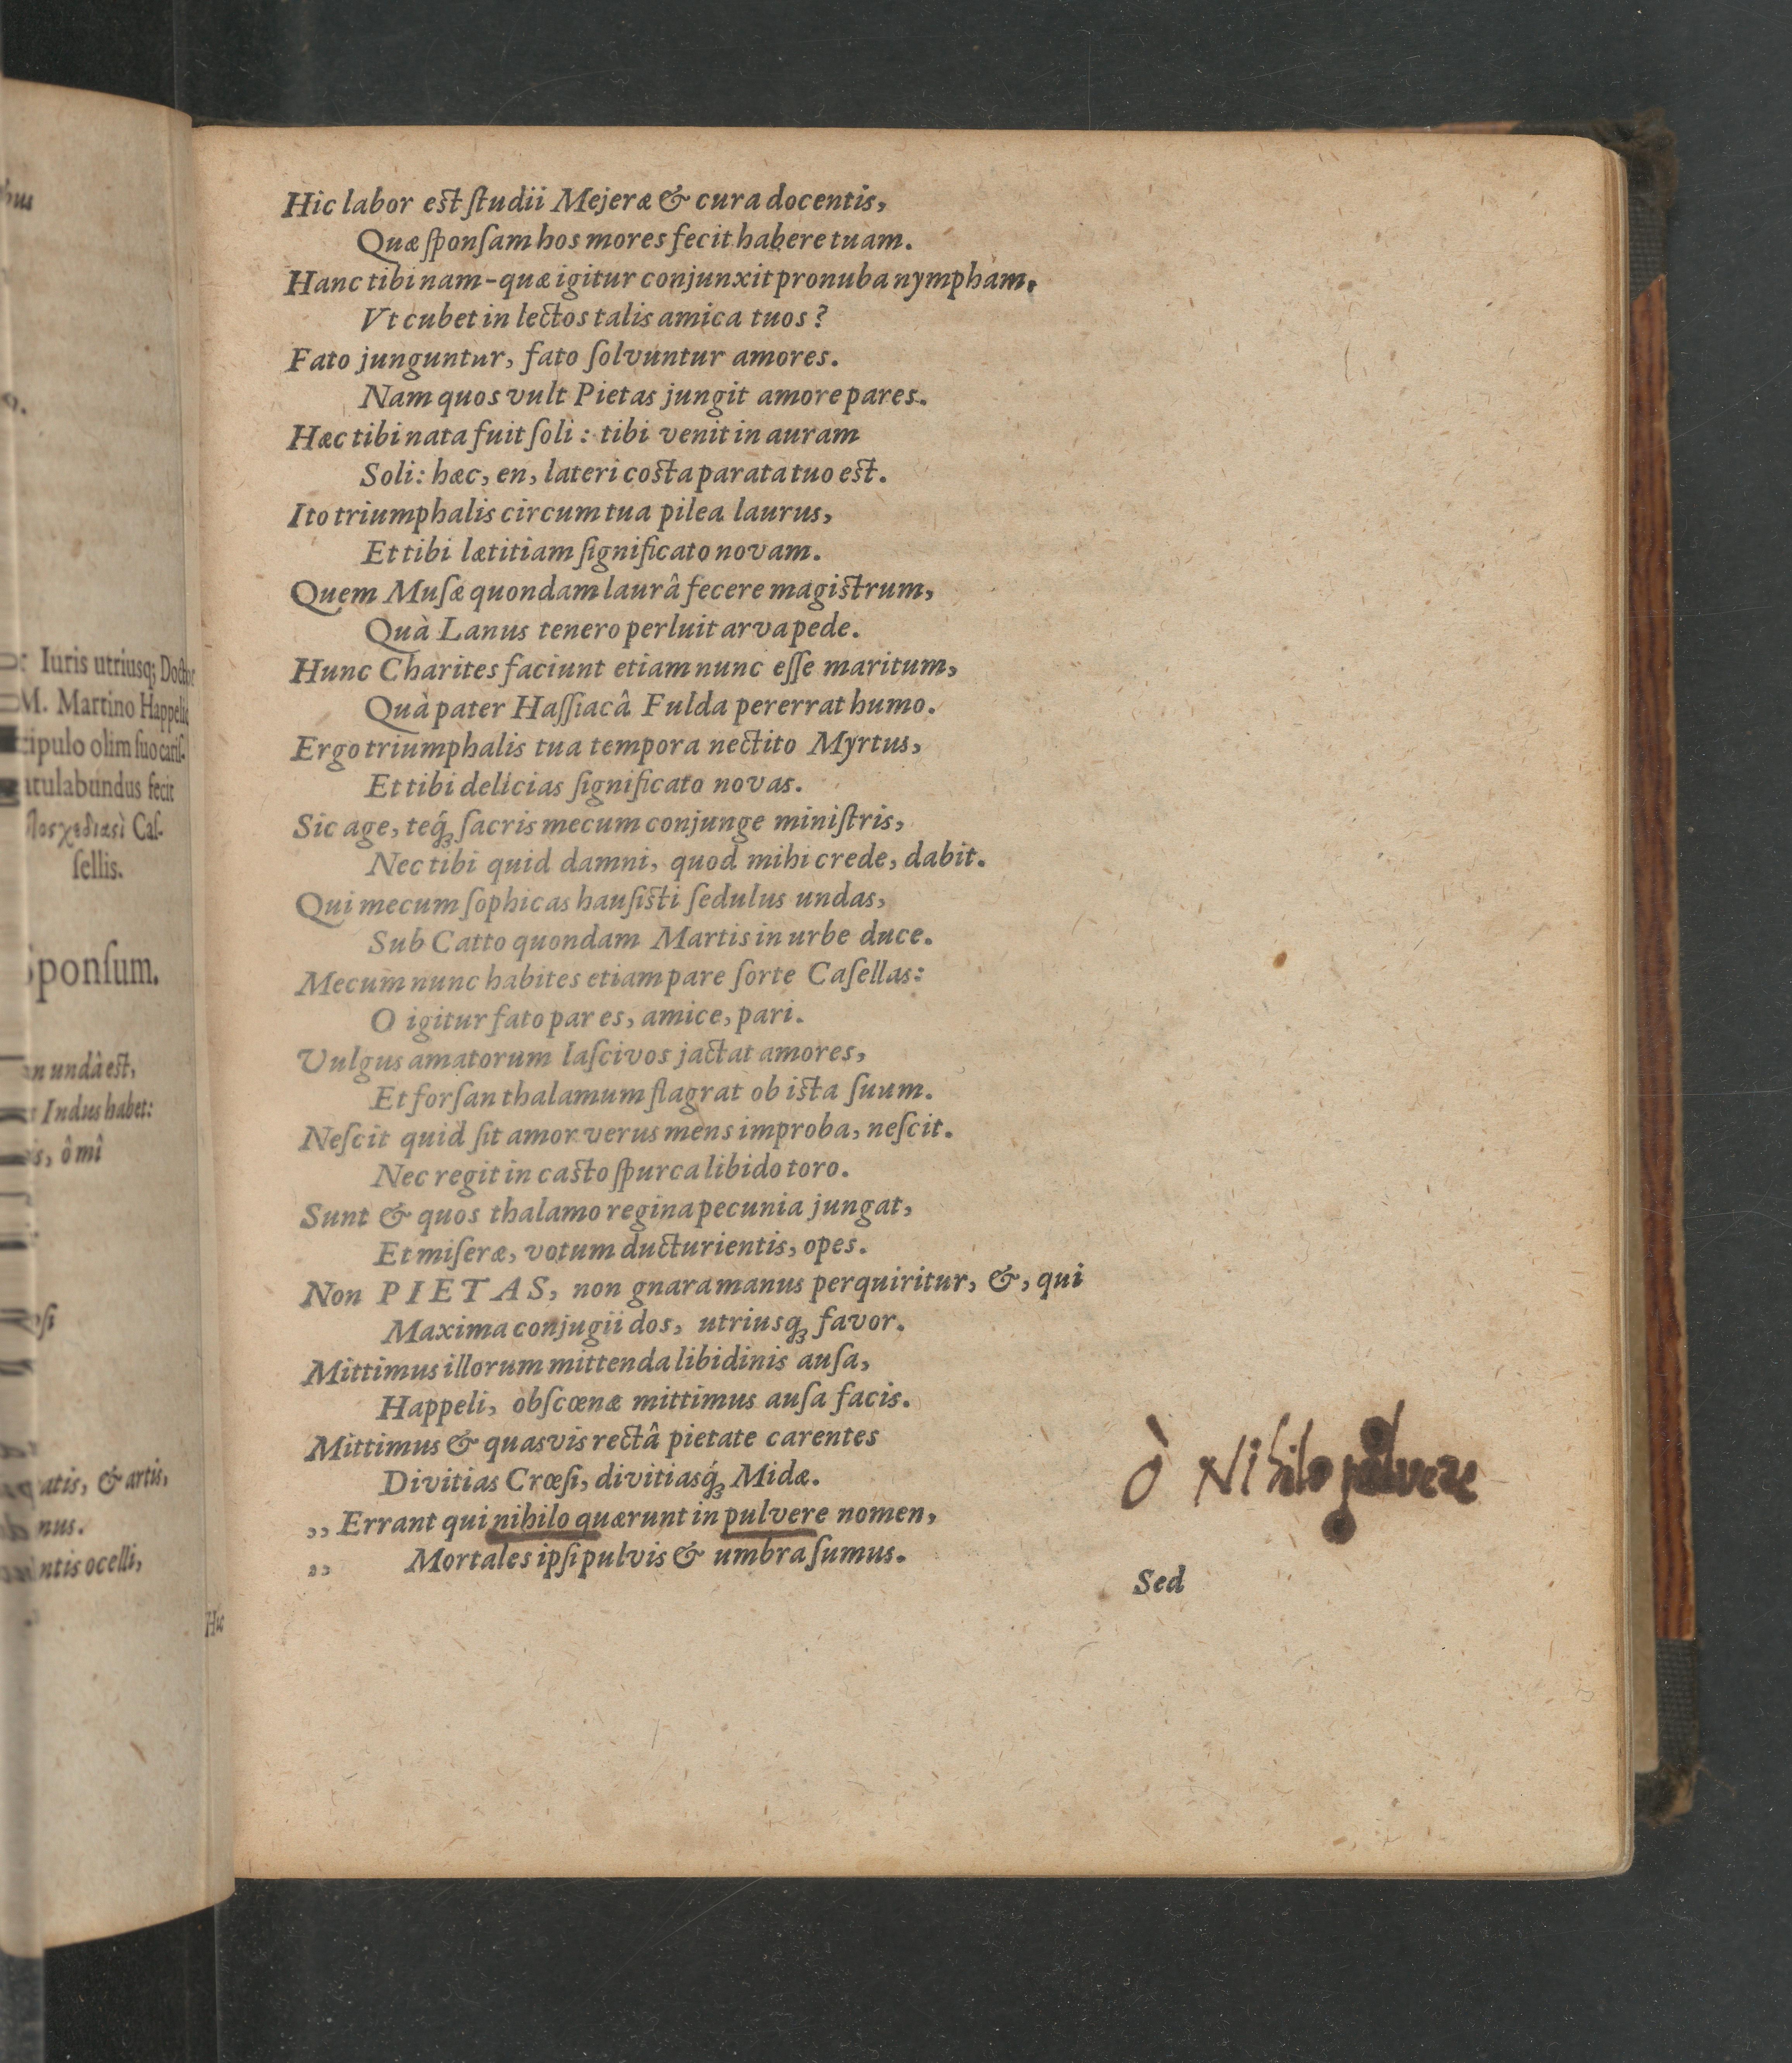 bus
Iuris utriusq; Doctor
M. Martino Happelio
cipulo olim suo cariſ-
atulabundus fecit
Caſ-
ſellis.
ponſum.
undâ eſt,
Indus habet:
ô mî
atis, & artis,
nus.
ntis ocelli,
Hic
Hic labor eſt ſtudii Mejeræ & cura docentis,
Quæ ſponſam hos mores fecit habere tuam.
Hanc tibi nam-quæ igitur conjunxit pronuba nympham,
Vt cubet in lectos talis amica tuos?
Fato junguntur, fato ſolvuntur amores.
Nam quos vult Pietas jungit amore pares.
Hæc tibi nata fuit ſoli: tibi venit in auram
Soli: hæc, en, lateri coſta parata tuo eſt.
Ito triumphalis circum tua pilea laurus,
Et tibi lætitiam ſignificato novam.
Quem Muſæ quondam laurâ fecere magiſtrum,
Quà Lanus tenero perluit arva pede.
Hunc Charites faciunt etiam nunc eſſe maritum,
Quà pater Haſſiacâ Fulda pererrat humo.
Ergo triumphalis tua tempora nectito Myrtus,
Et tibi delicias ſignificato novas.
Sic age, teq́ꝫ ſacris mecum conjunge miniſtris,
Nec tibi quid damni, quod mihi crede, dabit.
Qui mecum ſophicas hauſiſti ſedulus undas,
Sub Catto quondam Martis in urbe duce.
Mecum nunc habites etiam pare ſorte Caſellas:
O igitur fato par es, amice, pari.
Vulgus amatorum laſcivos jactat amores,
Et forſan thalamum flagrat ob iſta ſuum.
Neſcit quid ſit amor verus mens improba, neſcit.
Nec regit in caſto ſpurca libido toro.
Sunt & quos thalamo regina pecunia jungat,
Et miſeræ, votum ducturientis, opes.
Non PIETAS, non gnara manus perquiritur, &, qui
Maxima conjugii dos, utriusqꝫ favor.
Mittimus illorum mittenda libidinis auſa,
Happeli, obſcœnæ mittimus auſa facis.
Mittimus & quasvis rectâ pietate carentes
Divitias Crœſi, divitiasq́ꝫ Midæ.
„ Errant qui nihilo quærunt in pulvere nomen,
„ Mortales ipſi pulvis & umbra ſumus.
Ò Nihilo pulvere
Sed